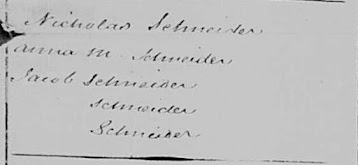 Nicholas Schneider
Anna M. Schneider
Jacob Schneider
Schneider
Schneider